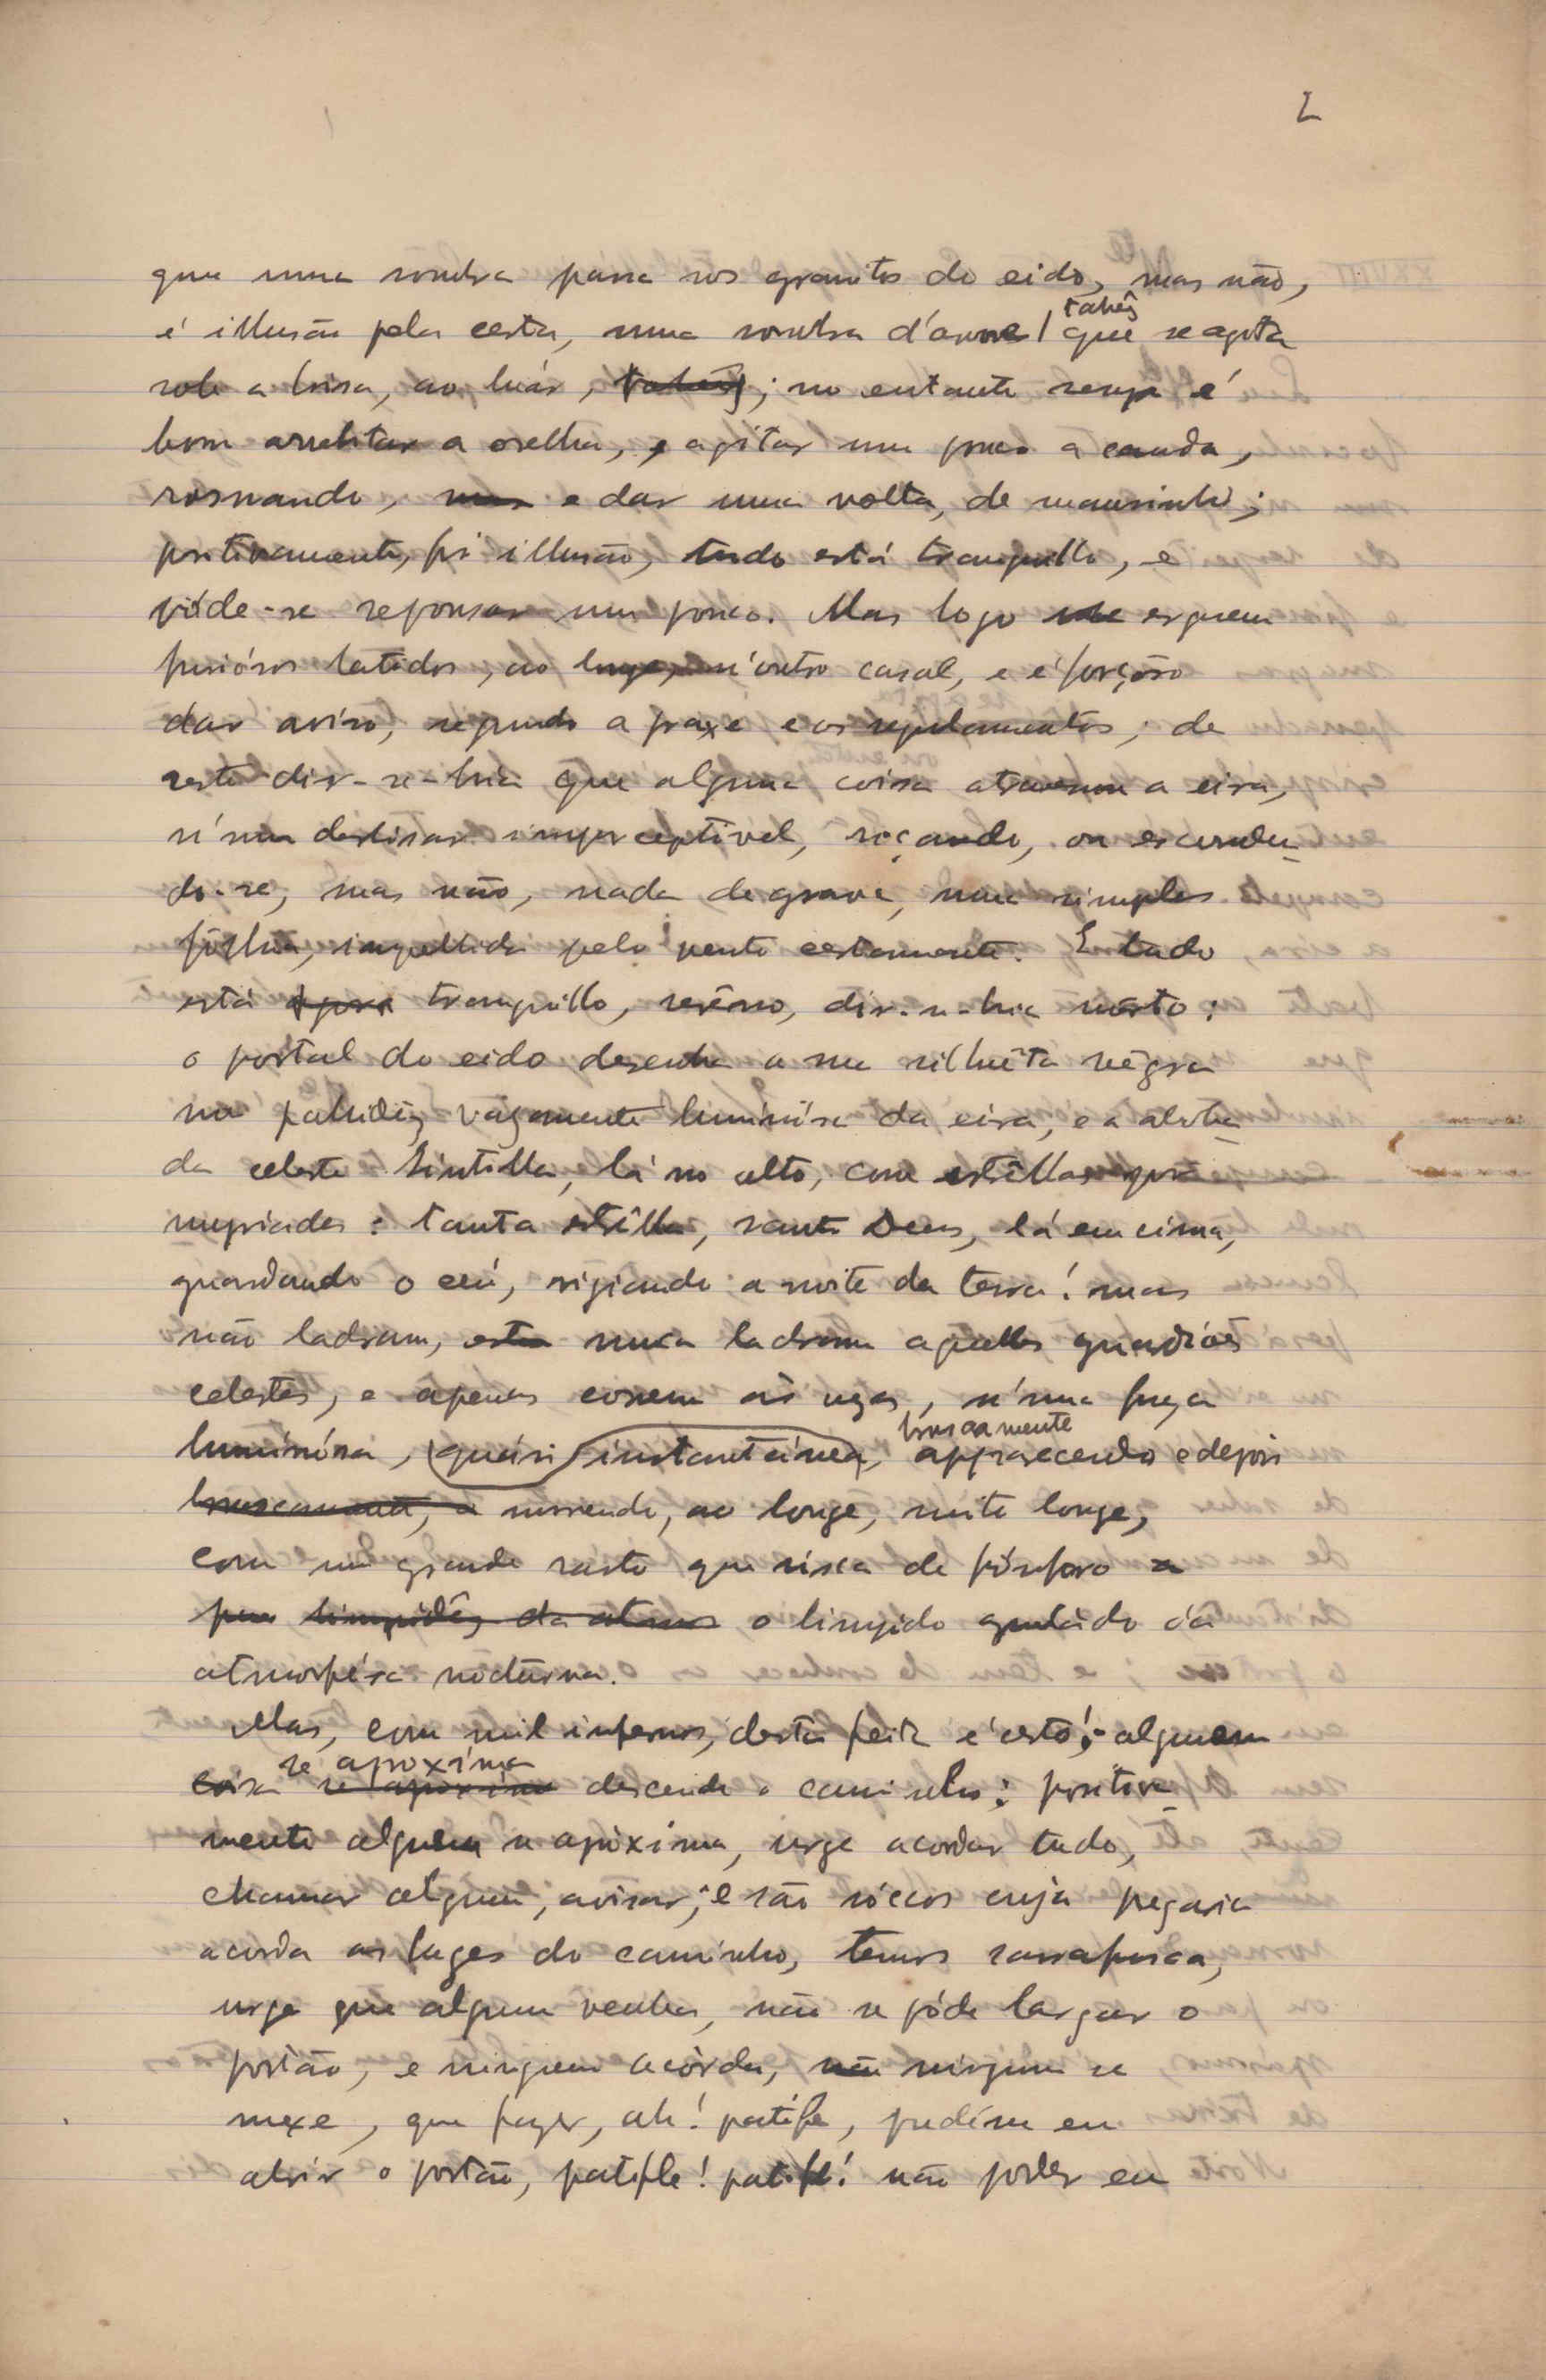 2
que uma sombra passa nos granitos do eido, mas não,
é illusão pela certa, uma sombra d'arvore talvêz que se agita
sob a brisa, ao luár, talvêz; no entanto sempre é
bom arrebitar a orelha, e agitar um pouco a cauda,
rosnando, mas e dar uma volta, de mansinho;
positivamente, foi illusão, tudo está tranquillo, e
póde-se repousar um pouco. Mas logo se erguem
furiósos latidos, ao longe, n'outro casal, e é forçôso
dar aviso, segundo a praxe e os regulamentos; de
resto dir-se-hia que alguma coisa atravessou a eira,
n'um deslisar imperceptivel, roçando, ou esconden-
do-se, mas não, nada de grave, uma simples
fôlha, impellida pelo vento certamente. E tudo
está agora tranquillo, serêno, dir-se-hia morto:
o portal do eido desenha a sua silhuêta nêgra
na palidêz vagamente luminósa da eira, e a aboba-
da celeste sintilla, lá no alto, com estrêllas por
myriades: tanta estrêlla, santo Deus, lá em cima,
guardando o ceú, vigiando a noite da terra! mas
não ladram, esta nunca ladram aquelles guardiães
celestes, e apenas correm ás vezes, n'uma fuga
luminósa, quási instantánea, bruscamente apparecendo e depois
bruscamente, e morrendo, ao longe, muito longe,
com um grande rasto que risca de fósforo a
pura limpidêz da atmos o limpido azuládo da
atmosféra nocturna.
Mas, com mil infernos, desta feita é certo! alguem
coisa se aproxima se aproxima descendo o caminho; positiva-
mente alguem se apróxima, urge acordar tudo,
chamar alguem, avisar; e são sóccos cuja pegasia
acorda as lages do caminho, temos sarrafusca,
urge que alguem venha, não se póde largar o
portão, e ninguem acórda, não ninguem se
mexe, que fazer, ah! patife, pudésse eu
abrir o portão, patife! patife! não poder eu